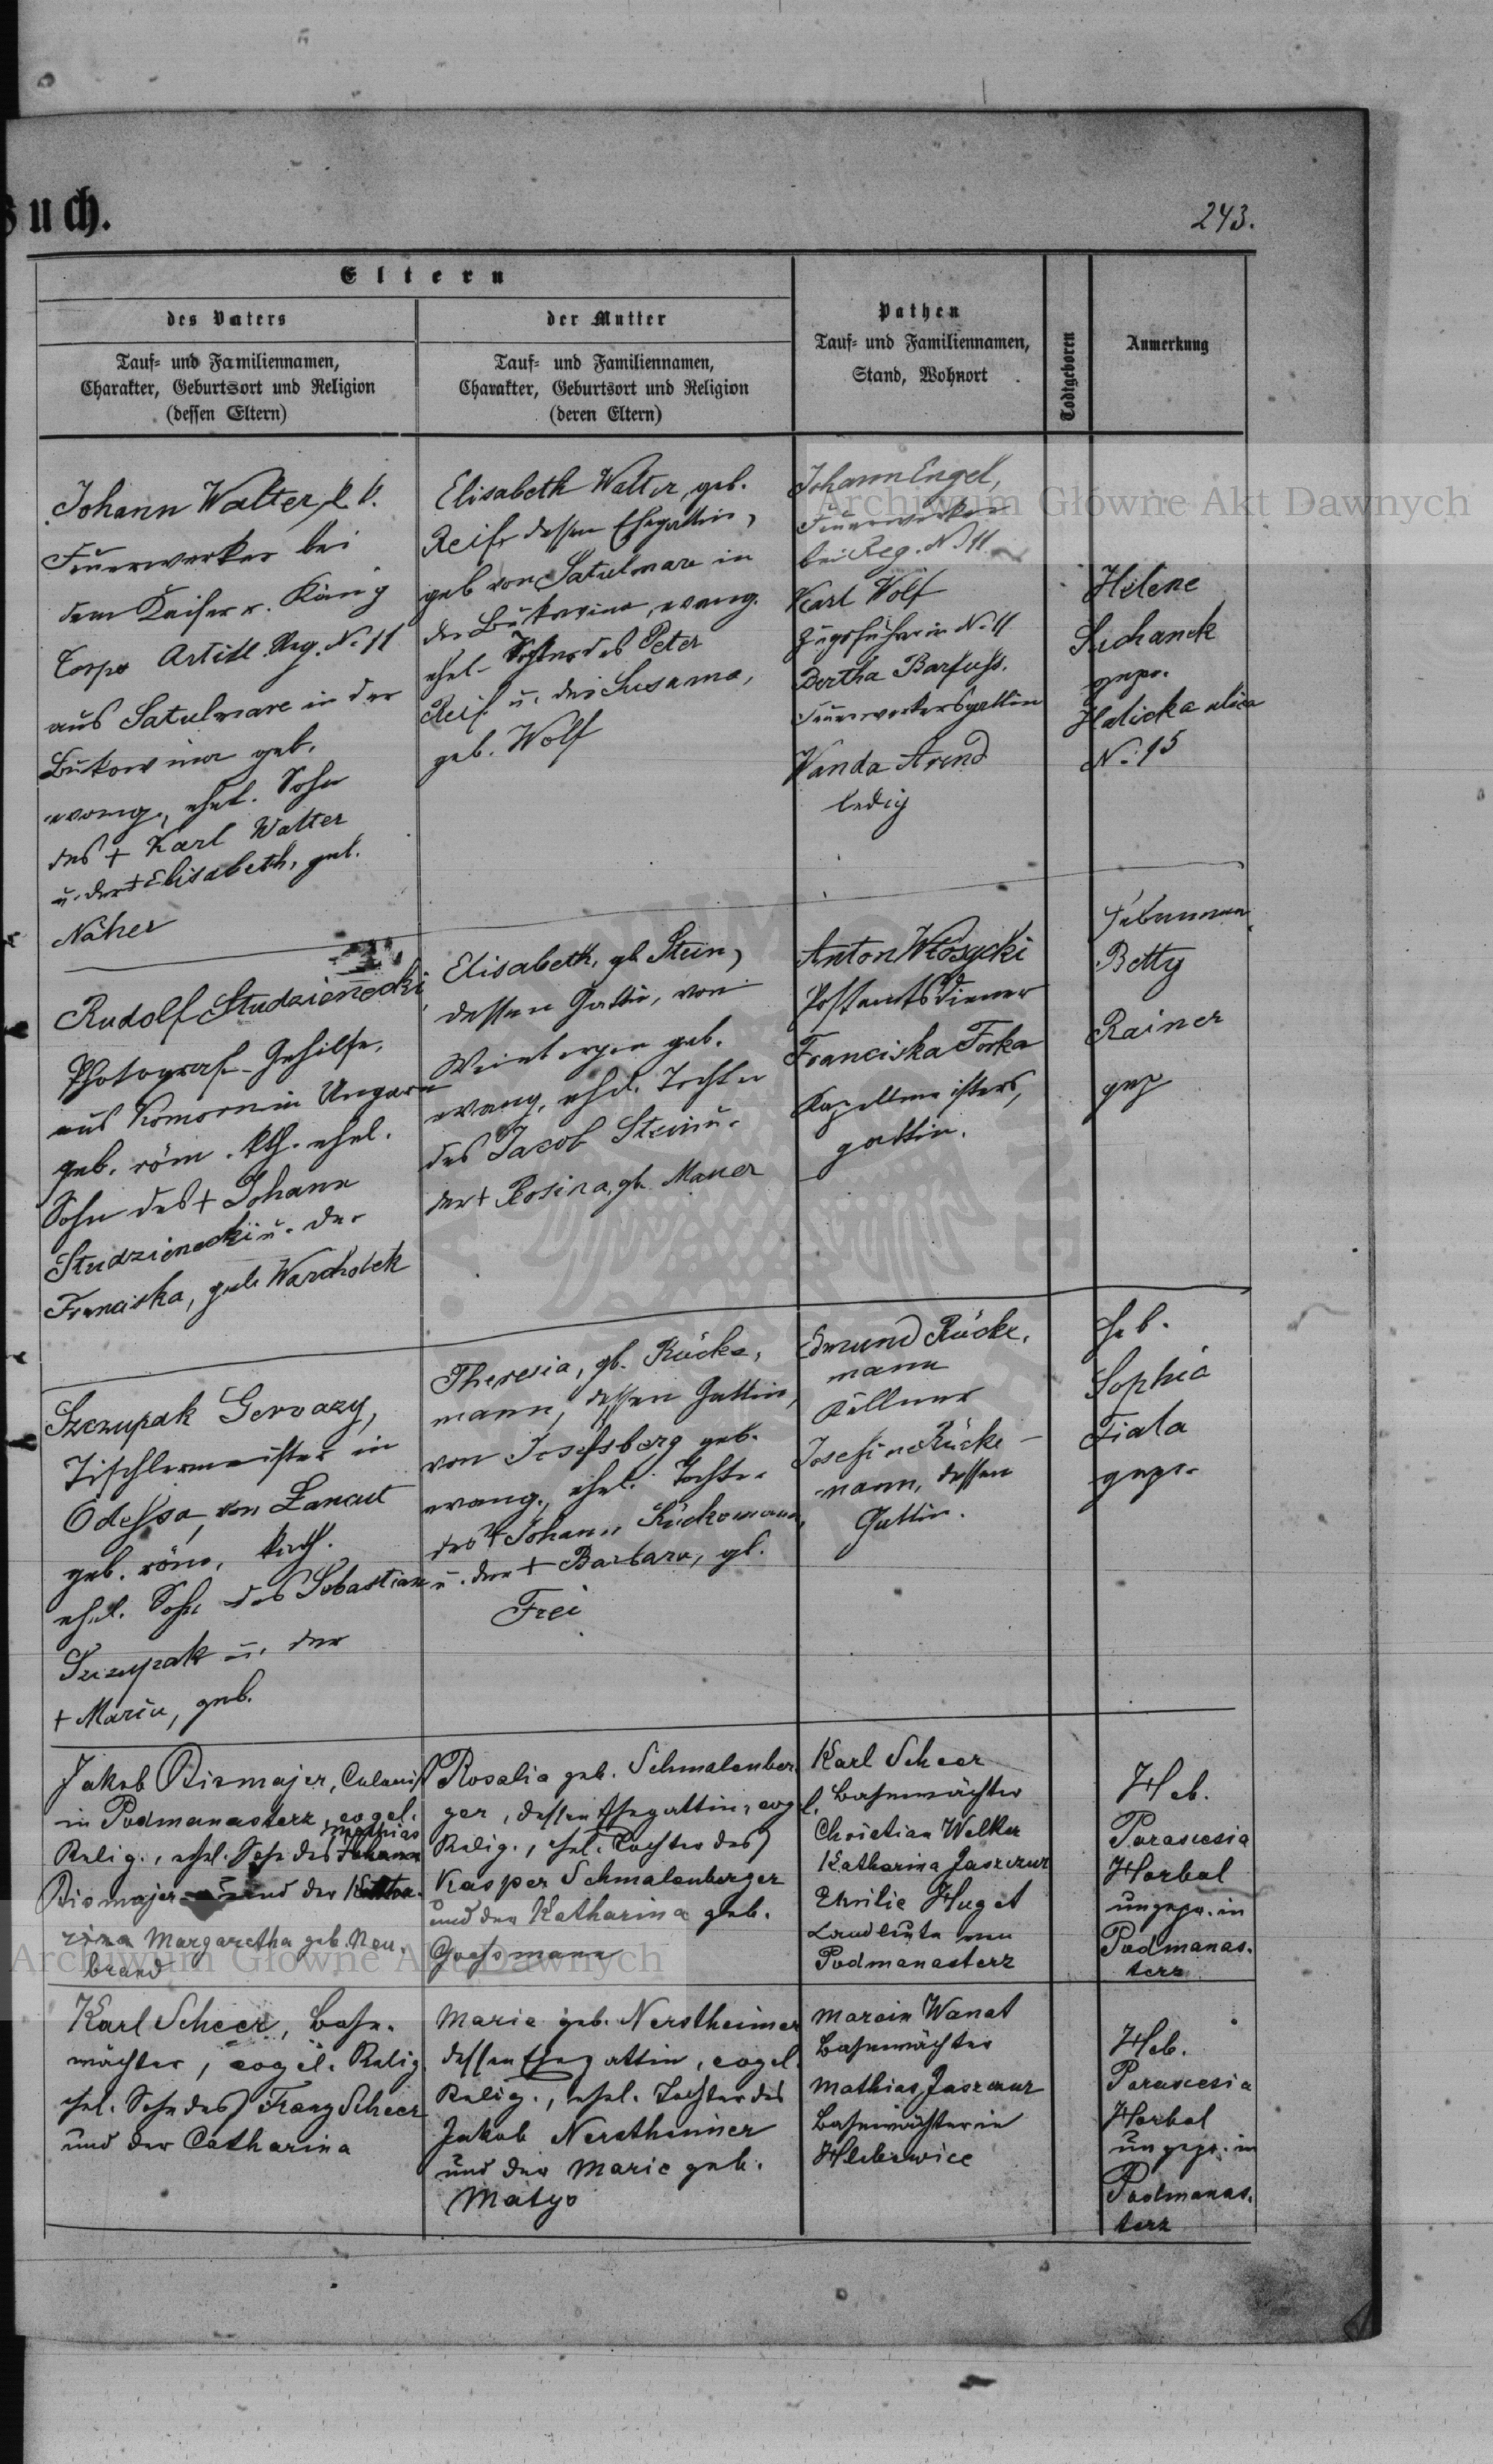 Buch.
243.
Eltern
des Vaters
Tauf= und Familiennamen,
Charakter, Geburtsort und Religion
(dessen Eltern)
der Mutter
Tauf= und Familiennamen,
Charakter, Geburtsort und Religion
(deren Eltern)
Pathen
Tauf= und Familiennamen,
Stand, Wohnort
Todtgeboren
Anmerkung
Johann Walter, k. k.
Feuerwerker bei
dem Kaiser u. König
Corps Artill. Reg. No 11
aus Satulmare in der
Bukowina geb.
evang., ehel. Sohn
des + Karl Walter
u. der + Elisabeth, geb.
Näher
Elisabeth Walter, geb.
Reif, dessen Ehegattin,
geb. von Satulmare in
der Bukowina, evang.
ehel. Tochter des Peter
Reif u. der Susanna,
geb. Wolf
Johann Engel,
Feuerwerker
bei Reg. No 11
Karl Wolf
Zugsführer in No 11
Bertha Barfuss.
Feuerwerkersgattin
Wanda Arend
ledig
Helene
Suchanek
gepr.
Halicka ulica
No 15
Rudolf Studzieniecki
Photograf-Gehilfe,
aus Komorn in Ungarn
geb. röm. kth. ehel.
Sohn des + Johann
Studzieniecki u. der
Franciska, geb. Warcholek
Elisabeth, gb. Stein,
dessen Gattin, von
Weinbergen geb.
evang. ehel. Tochter
des Jacob Stein u.
der + Rosina, gb. Mauer
Anton Włosycki
Postamtsdiener
Franciska Forka
Kapellmeisters,
gattin.
Hebamme
Betty
Rainer
gep
Szczupak Gervazy,
Tischlermeister in
Odessa, von Lancut
geb. röm. kath.
ehel. Sohn des Sebastian
Szczupak u. der
+ Maria, geb.
Theresia, gb. Rücke,
mann, dessen Gattin,
von Josefsberg geb.
evang., ehel. Tochter
des + Johann Rückemann,
u. der + Barbara, gb.
Frei
Edmund Rücke,
mann
Kellner
Josefine Rücke-
mann, dessen
Gattin.
Heb.
Sophia
Fiala
gepr.
Jakob Bismajer, Colonist
in Podmanasterz, evgel.
Relig., ehel. Sohn des Mathias
Bismajer und der
Margaretha geb. Neu.
brand
Rosalia geb. Schmalenber
ger, dessen Ehegattin, evgel.
Relig., ehel. Tochter des
Kasper Schmalenberger
und der Katharina geb.
Grossmann
Karl Scheer
Bahnwächter
Christian Welker
Katharina Jaszczur
Emilie Huget
Landleute von
Podmanasterz
Heb.
Parascesia
Horbal
ungepr. in
Podmanas.
terz
Karl Scheer, Bahn.
wächter, evgel. Relig.
ehel. Sohn des Franz Scheer
und der Catharina
Marie geb. Nerstheimer
dessen Ehegattin, evgel.
Relig., ehel. Tochter des
Jakob Nerstheimer
und der Marie geb.
Matys
Marcin Wanat
Bahnwächter
Mathias Jaszczur
Bahnwächter in
Hlebowice
Heb.
Parascesia
Horbal
ungepr. in
Podmanas.
terz
Archiwum Główne Akt Dawnych
Archiwum Główne Akt Dawnych